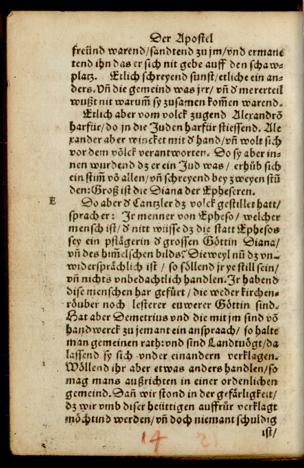 Der Apostel
freünd warend/sandtend zu jm/vnd ermane
tend jhn das er sich nit gebe auff den schaw⸗
platz. Etlich schreyend sunst/etliche ein an⸗
ders. Vñ die gemeind was jrr/ vñ d mererteil
wußt nit warum̃ sy zusamen kom̃en warend.
Etlich aber vom volck zugend Alexandrõ
harfür/do jn die Juden harfür stiessend. Ale
xander aber wincket mit d hand/ vñ wolt sich
vor dem völck verantworten. Do sy aber in⸗
nen wurdend dz er ein Jud was/ erhüb sich
ein stim̃ võ allen/ vñ schreyend bey zweyen stũ
den: Groß ist die Diana der Epheseren.
E Do aber d Cantzler dz volck gestillet hatt/
sprach er: Jr menner von Epheso/ welcher
mensch ist/ d nitt wüsse dz die statt Ephesos
sey ein pflägerin d grossen Göttin Diana/
vñ des him̃elschen bilds? Dieweyl nũ dz vn⸗
widersprächlich ist/ so söllend jr ye still sein/
vñ nichts vnbedachtlich handlen. Jr habend
dise menschen har gefürt/ die weder kirchen⸗
röuber noch lesterer euwerer Göttin sind.
Hat aber Demetrius vnd die mit jm sind võ
handwerck zu jemant ein anspraach/ so halte
man gemeinen rath: vnd sind Landtuögt/da
lassend sy sich vnder einandern verklagen.
Wöllend ihr aber etwas anders handlen/ so
mag mans außrichten in einer ordenlichen
gemeind. Dañ wir stond in der gefärligkeit/
dz wir vmb diser heüttigen auffrür verklagt
möchtind werden/ vñ doch niemant schuldig
ist/
14 21